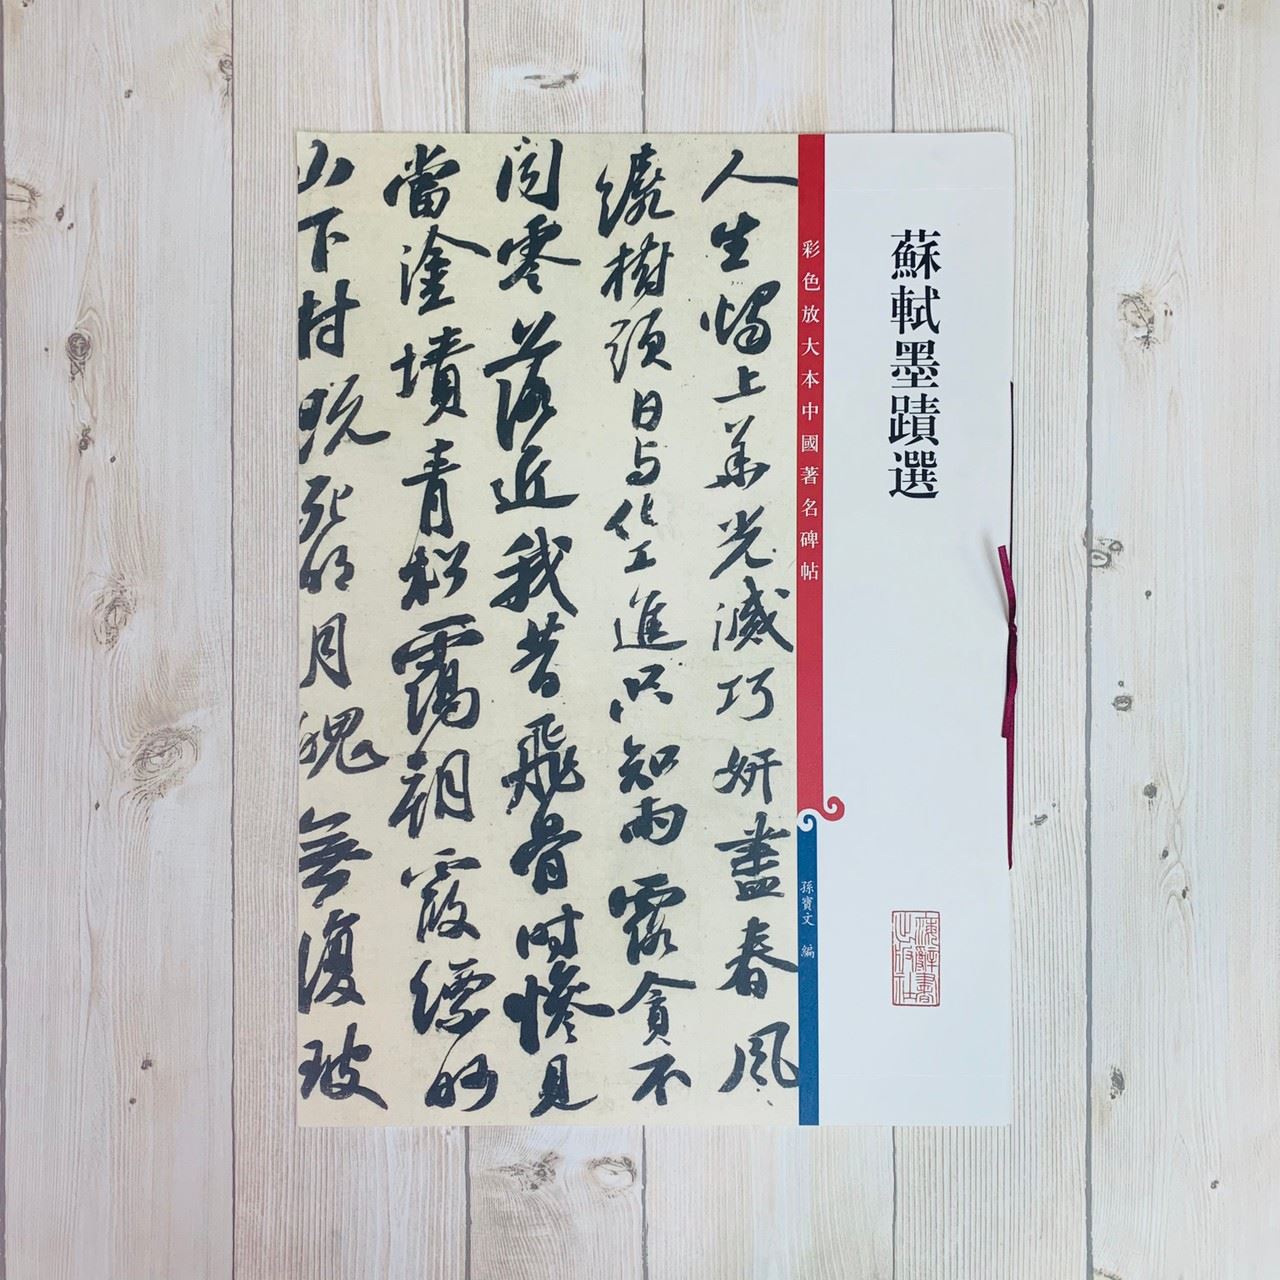 蘇軾墨蹟選
上海辭書
出版社
彩色放大本中國著名碑帖
孫寶文 編
人生燭上華光滅巧妍盡春風
繞樹頭日與化工進只知雨露貪不
聞零落近我昔飛骨時慘見
當塗墳青松靄朝霞縹緲
山下村既死明月魄無復玻